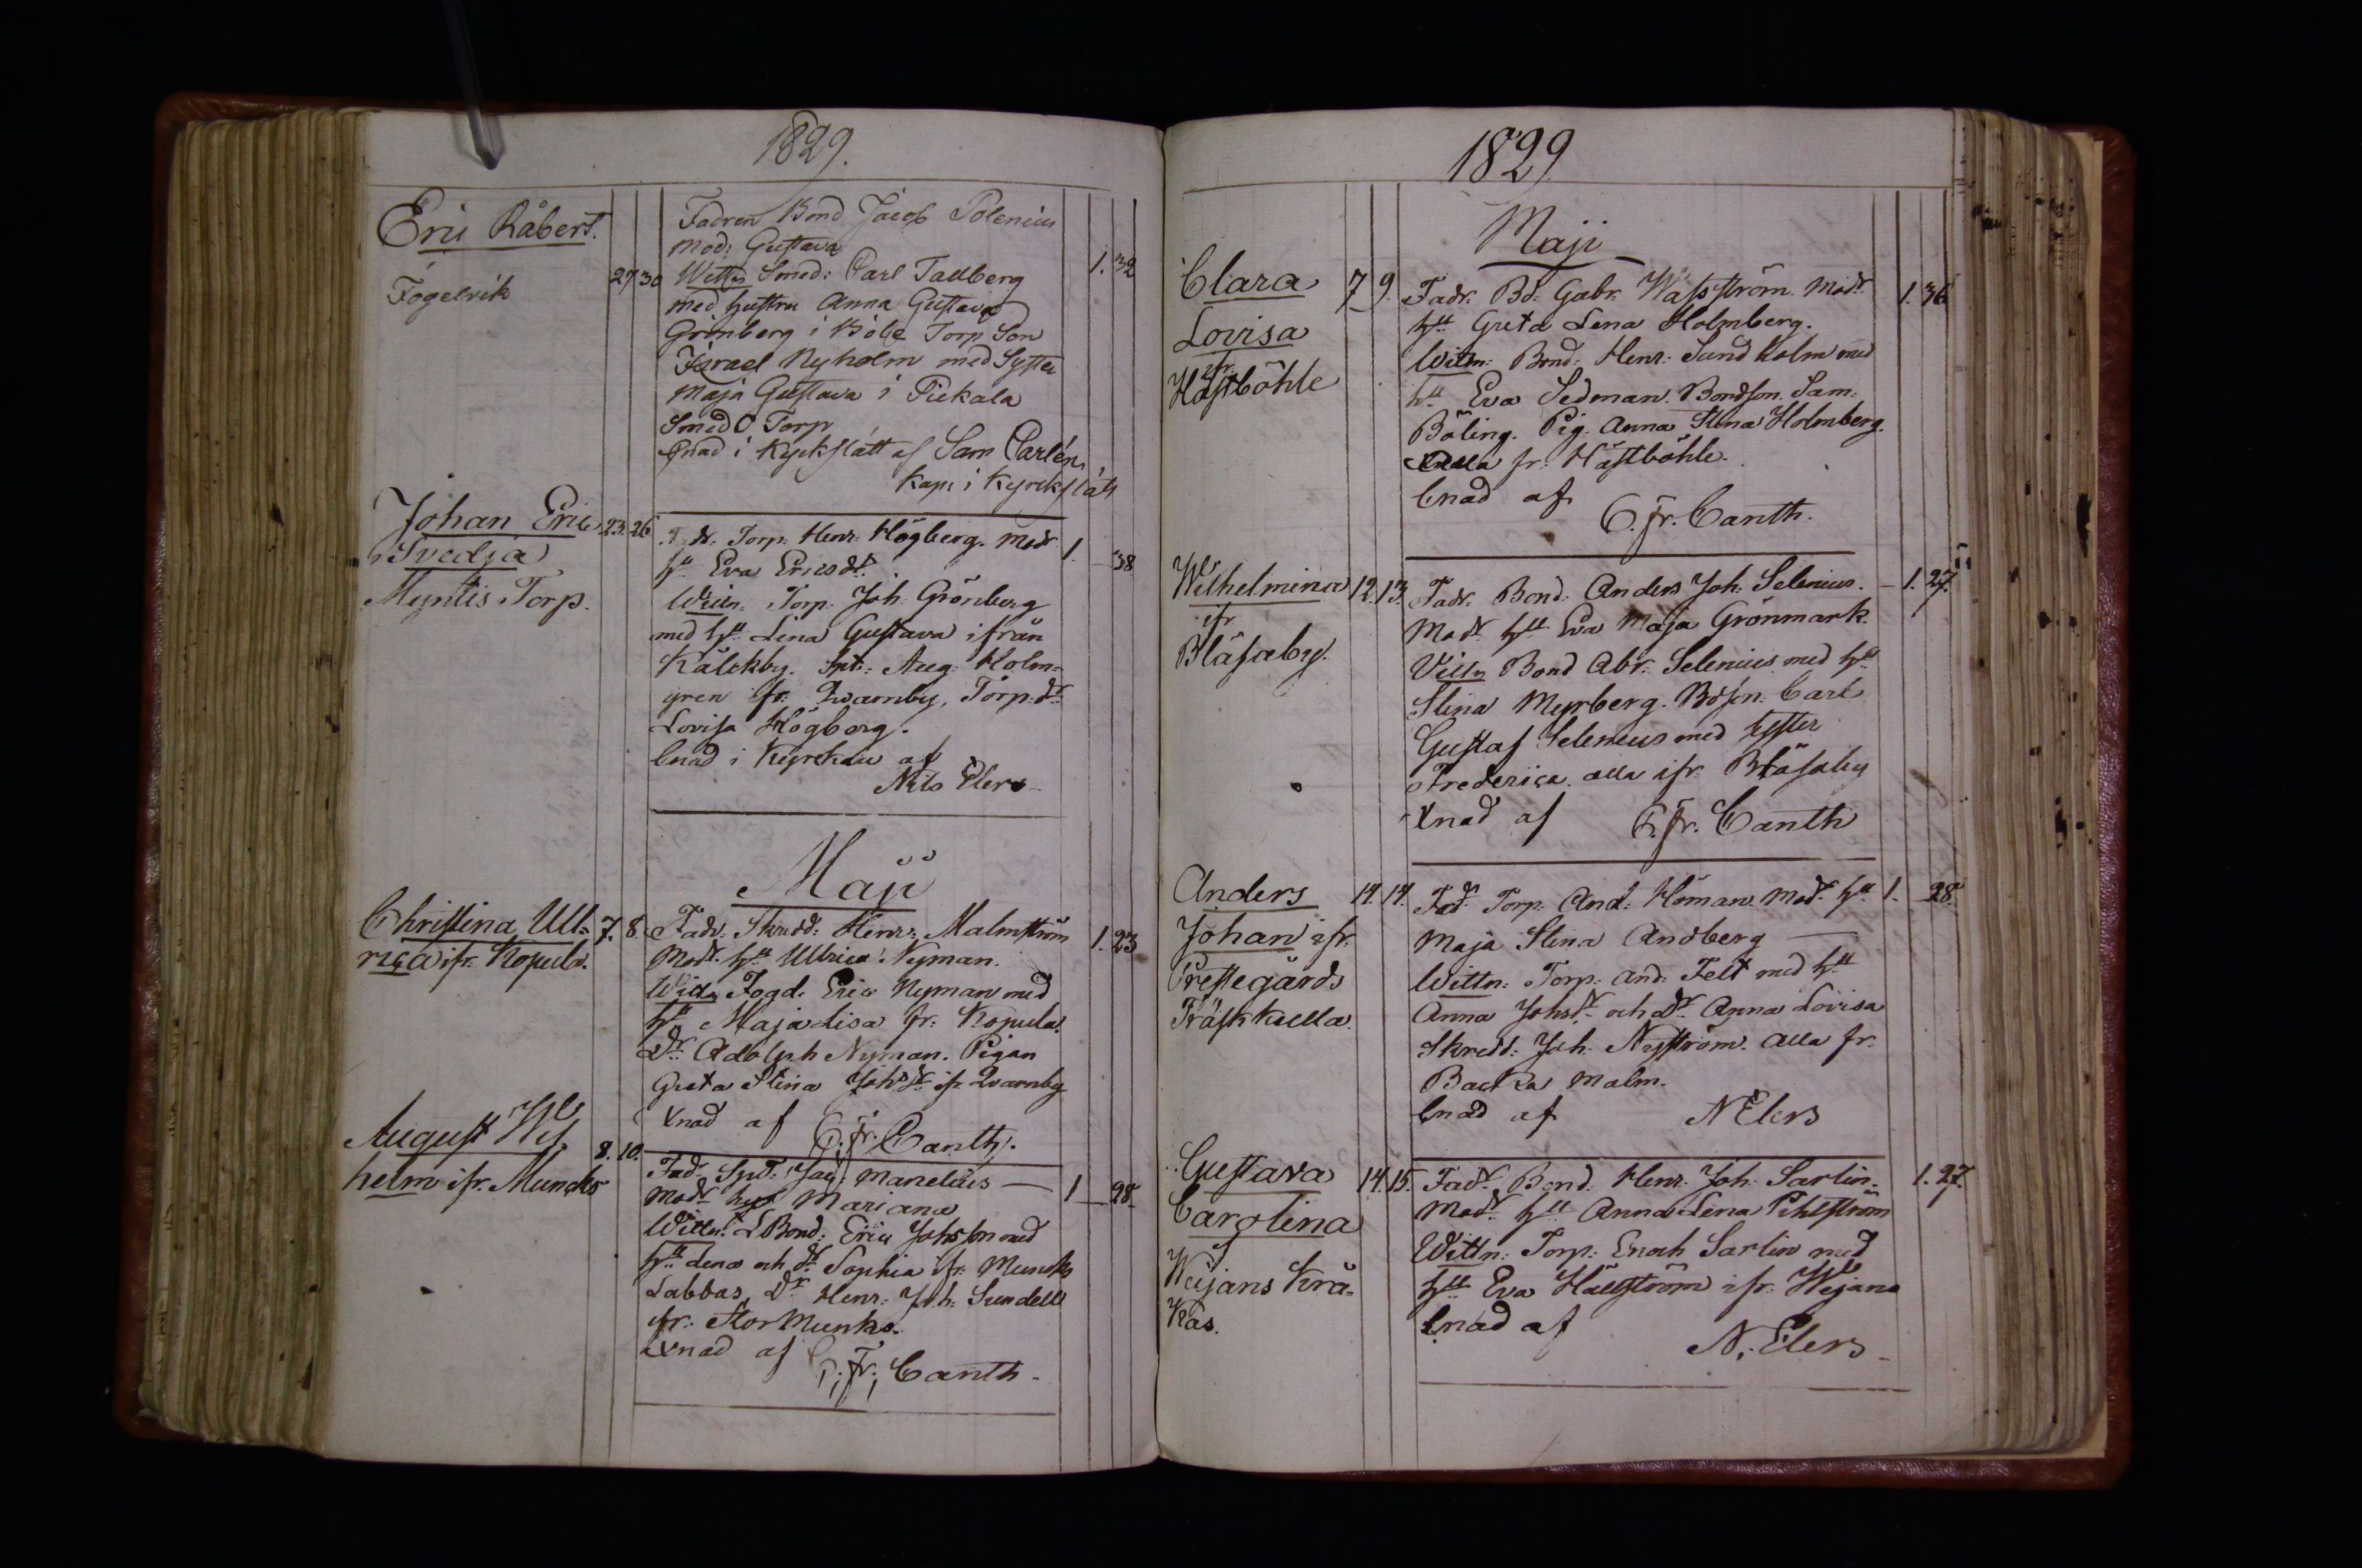 1829.
Eric Råbert.
Fogelvik
27 30
Fadren Bond Jacob Polenius
Mod: Gustava
Wittn Smed: Carl Tallberg
med hustru Anna Gustava
Grönberg i Böle Torp Son
Israel Nyholm med Syster
Maja Gustava i Pickala
Smeds Torp
Xnad i Kyrkslätt af Sam Carlén
Kapl i Kyrkslätt
1. 32
Johan Eric
i Svedja
Myntis Torp.
23. 26
Fadr. Torp: Henr: Högberg. Modr
hu Eva Ericsdr.
Wittn. Torp. Joh. Grönberg
med hu Lena Gustava ifrån
Källkby. Aug: Holm-
gren fr. Qvarnby, Torp: dr
Lovisa Högberg.
Cnad i Kyrckan af
Nils Elers
1. 38
Maji
Christina Ull-
rica ifr. Kopula.
7. 8.
Fadr. Skredd: Henr: Malmström
Modr. hu Ullrica Nyman.
Wittn Fogd. Eric Nyman med
hu Maja Lisa fr: Kopula.
Dr. Adolph Nyman. Pigan
Greta Stina Johsdr ifr Qvarnby
Xnad af C. Fr. Canth.
1. 23
August Wil
helm ifr. Muncks
8. 10.
Fad. Jac: Manelius —
Modr hus Mariana
Wittn: Bond: Eric Johsson med
hu Lena och dr Sophia ifr: Muncks
Labbas, Dr Henr: Joh: Sundell
ifr: Stor Munks.
Xnad af C. Fr. Canth.
1 28
1829
Maji
Clara
Lovisa
ifr
Hästböhle
7 9.
Fadr. Bd: Gabr. Wasström. Modr
hu Greta Lena Holmberg.
Wittn: Bond: Henr: Sundholm med
hu Eva Sedman. Bondson. Sam:
Böling. Pig. Anna Stina Holmberg.
Alla fr: Hästböhle.
Cnad af
C. Fr. Canth.
1. 36
Wilhelmina
ifr
Bläsaby.
12. 13.
Fadr. Bond: Anders Joh: Selenius.
Modr hu Eva Maja Grönmark.
Vittn Bond Abr. Selenius med hu
Stina Myrberg. Bdson. Carl
Gustaf Selenius med syster
Frederica. alla ifr. Bläsaby
Xnad af C. Fr. Canth
1. 27.
Anders
Johan ifr.
Prestegårds
Träskkulla.
14. 14.
Fadr Torp. And: Höman. Modr. hu
Maja Stina Andberg
Wittn: Torp: And: Felt med hu
Anna Johsdr och dr Anna Lovisa
Skredd: Joh: Nyström. Alla fr.
Backa Malm.
Cnad af N Elers
1. 28.
Gustava
Carolina
Weijans Krå-
kas.
14. 15.
Fadr. Bond. Henr. Joh. Sarlin.
Modr hu Anna Lena Pihlström
Wittn: Torp: Enoch Sarlin med
hu Eva Hällström ifr: Wejans
Cnad af
N. Elers
1. 27.